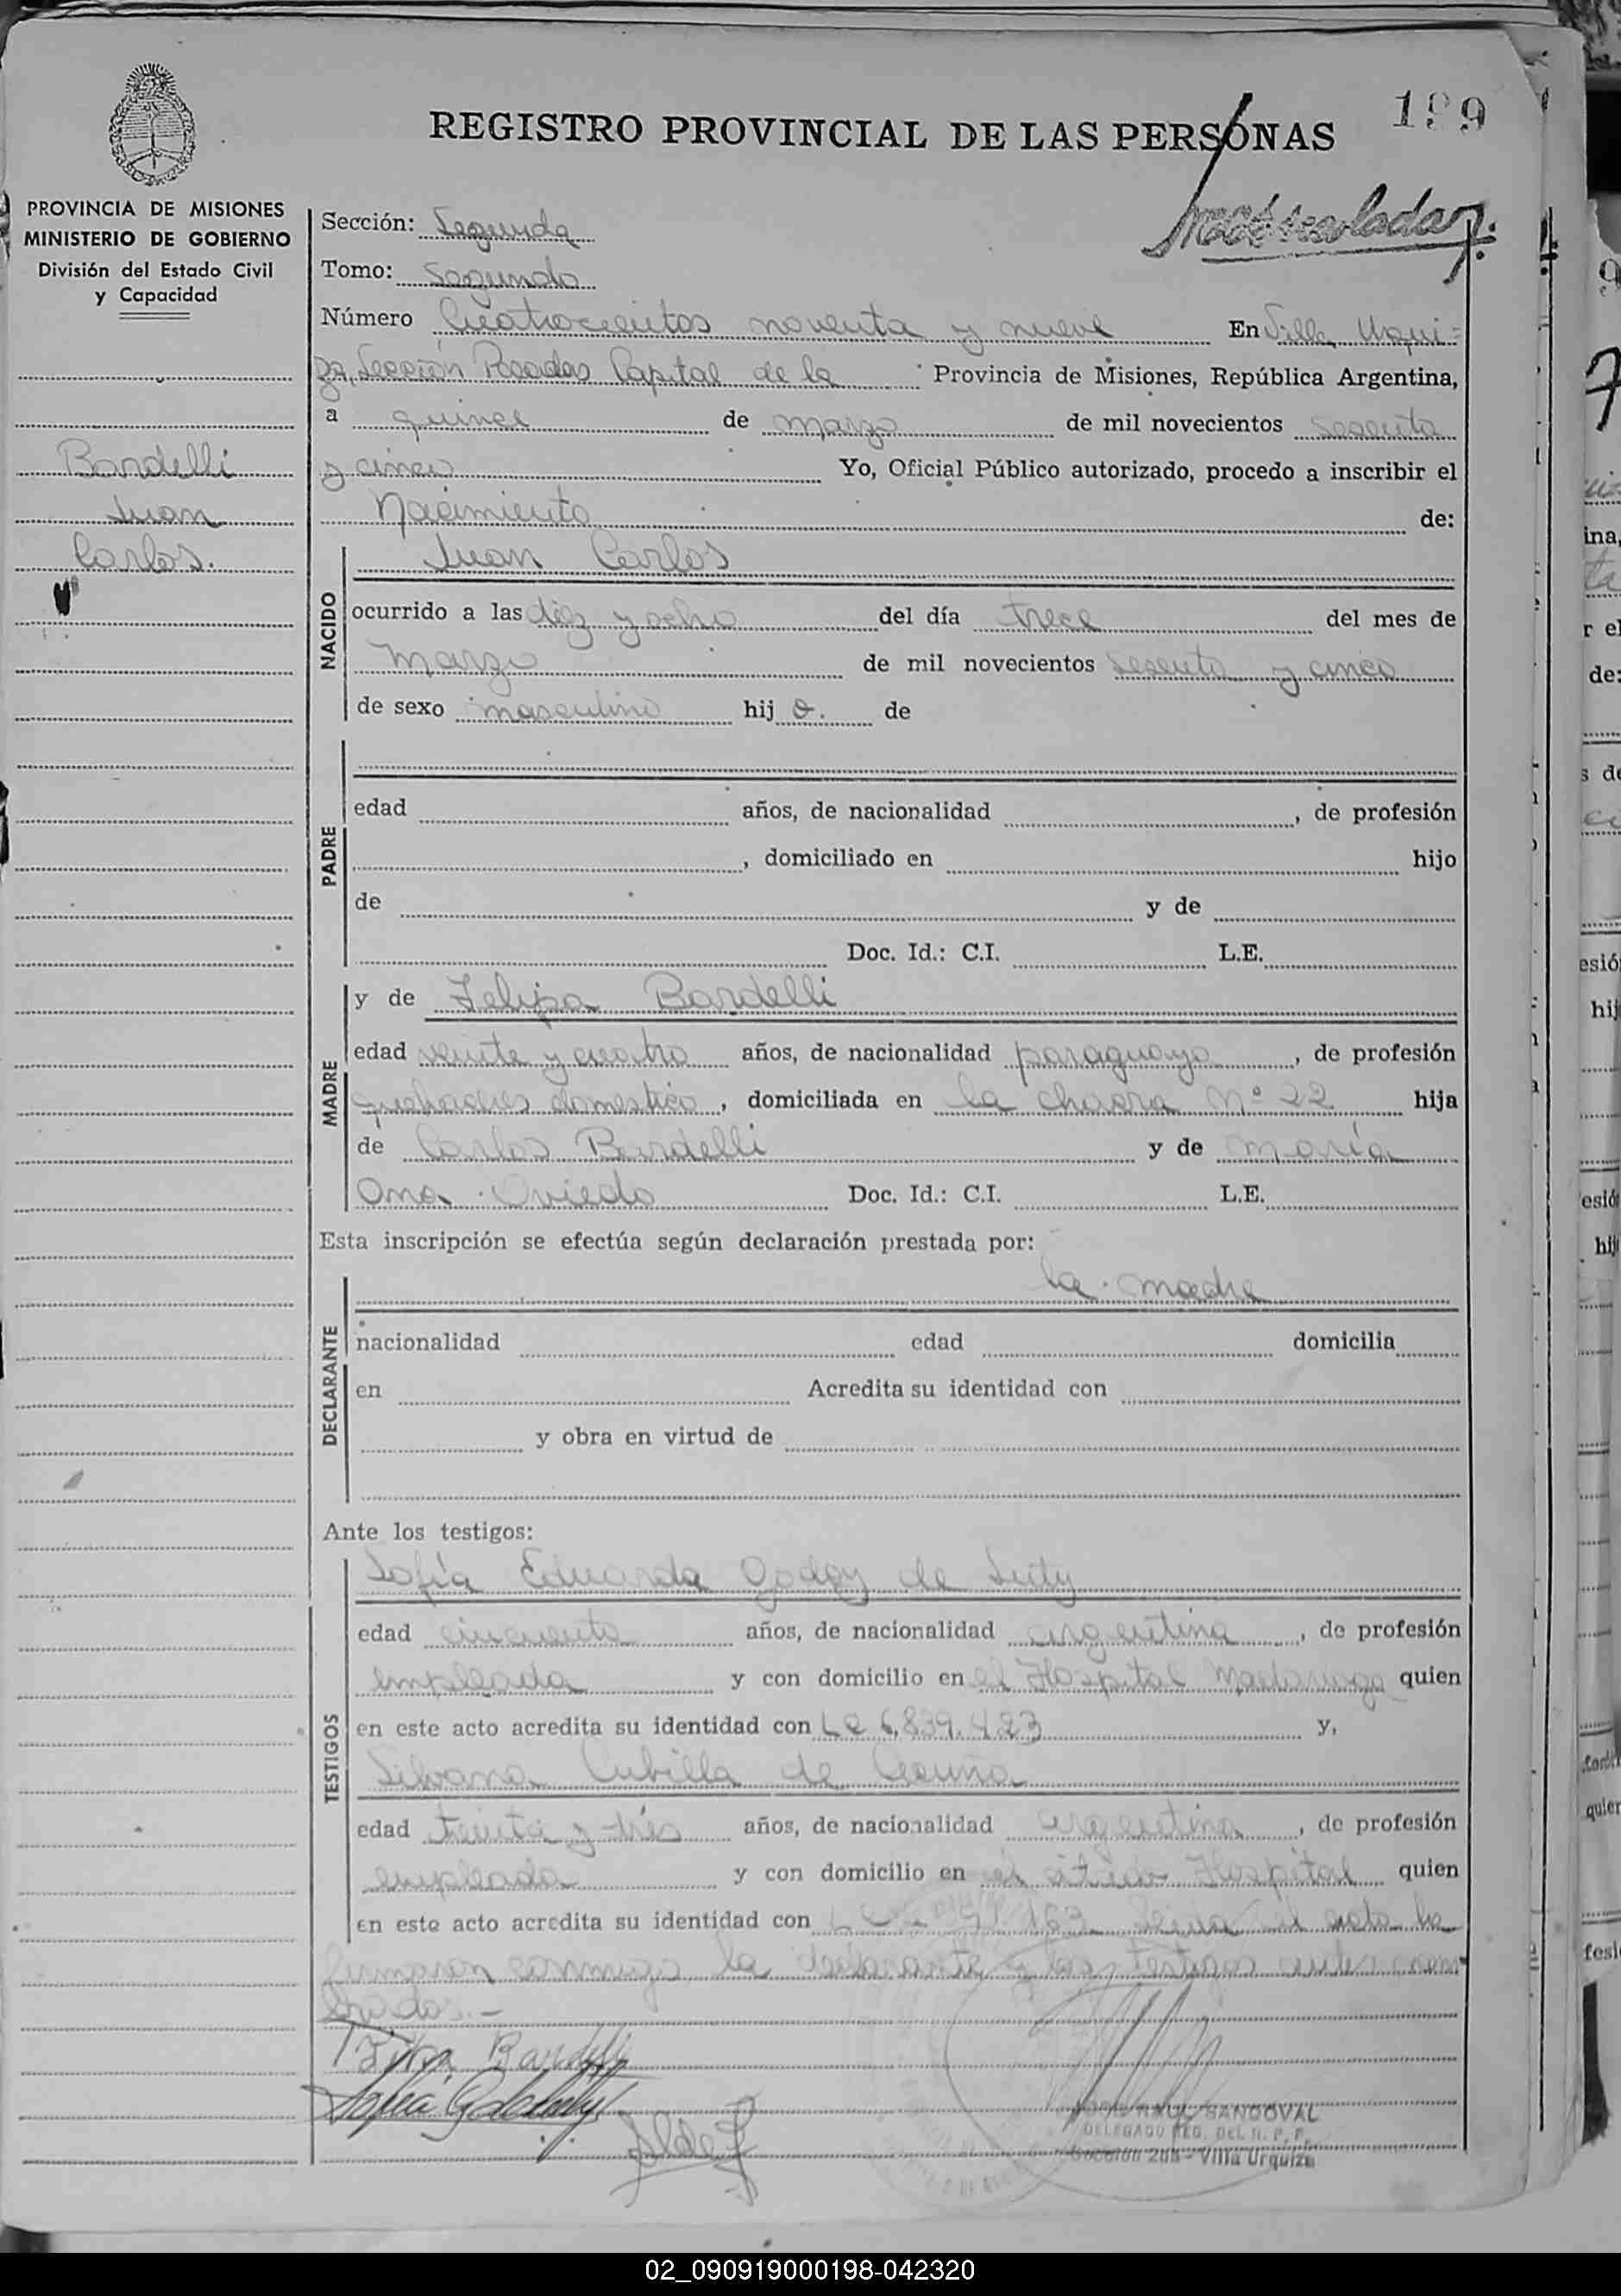 199
REGISTRO PROVINCIAL DE LAS PERSONAS
PROVINCIA DE MISIONES
MINISTERIO DE GOBIERNO
División del Estado Civil
y Capacidad
Bardelli
Juan
Carlos.
Sección: Segunda
Tomo: Segundo
Número Cuatrocientos noventa y nueve En Villa Urqui=
za, Sección Posadas Capital de la Provincia de Misiones, República Argentina,
a quince de marzo de mil novecientos sesenta
y cinco Yo, Oficial Público autorizado, procedo a inscribir el
Nacimiento de:
NACIDO
Juan Carlos
ocurrido a las diez y ocho del día trece del mes de
Marzo de mil novecientos sesenta y cinco
de sexo masculino hij o. de
PADRE
edad años, de nacionalidad , de profesión
, domiciliado en hijo
de y de
Doc. Id.: C.I. L.E.
MADRE
y de Felipa Bardelli
edad veinte y cuatro años, de nacionalidad paraguaya , de profesión
quehaceres domestico , domiciliada en la chacra Nº 22 hija
de Carlos Bardelli y de María
Ana Oviedo Doc. Id.: C.I. L.E.
Esta inscripción se efectúa según declaración prestada por:
DECLARANTE
la madre
nacionalidad edad domicilia
en Acredita su identidad con
y obra en virtud de
Ante los testigos:
TESTIGOS
Sofía Eduarda Godoy de
edad cincuenta años, de nacionalidad argentina , de profesión
empleada y con domicilio en el Hospital Madariaga quien
en este acto acredita su identidad con L C 6,839.423 y,
Silvana Cubilla de Acuña
edad treinta y tres años, de nacionalidad argentina , de profesión
empleada y con domicilio en el citado Hospital quien
en este acto acredita su identidad con Leida el acta la
firmaron conmigo la declarante y los testigos antes nom
brados.-
Bardelli
RAUL SANDOVAL
DELEGADO REG. DEL R. P. P.
Sección 2da - Villa Urquiza
02_090919000198-042320